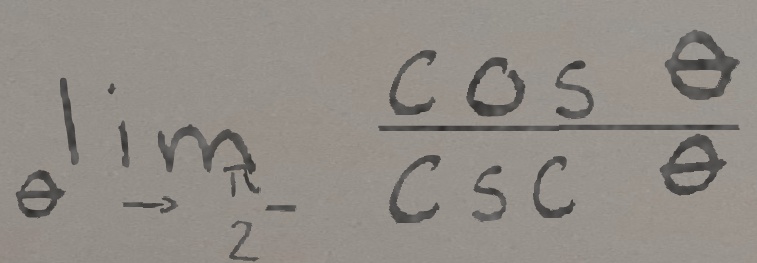 \lim_{\theta \to \frac{\pi}{2}^-} \frac{\cos \theta}{\csc \theta}